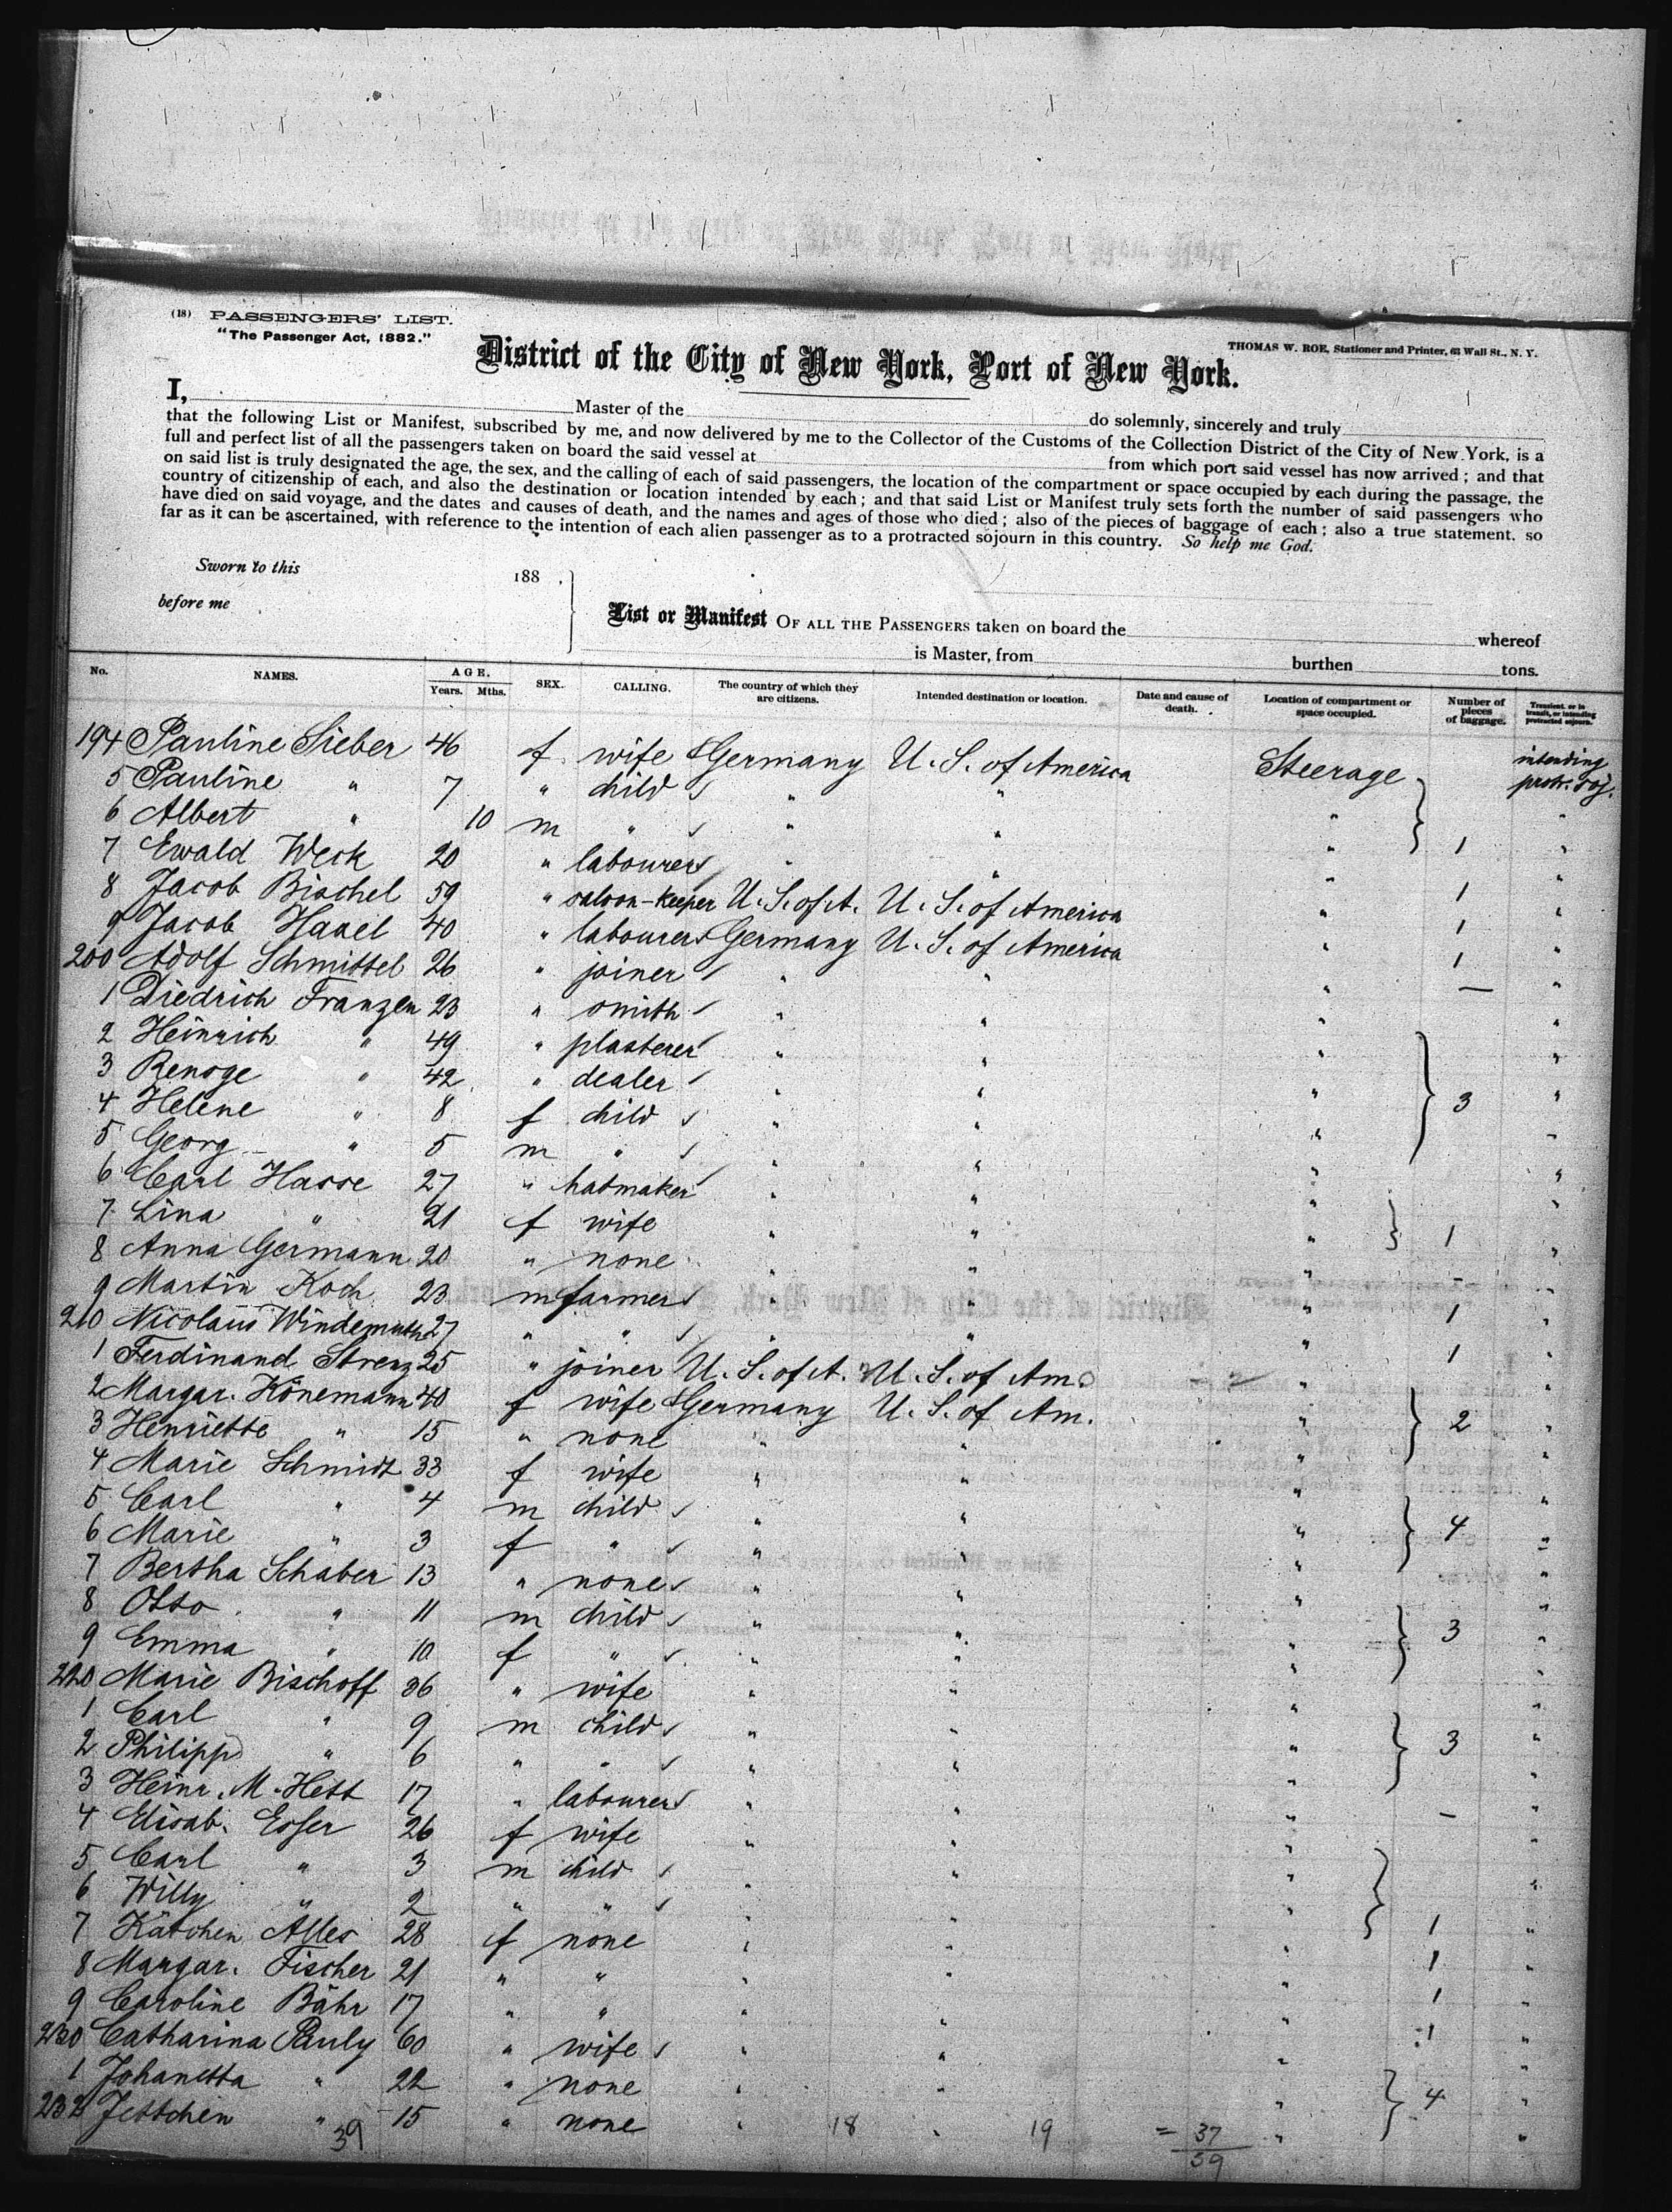 (18) PASSENGERS' LIST.
"The Passenger Act, 1882."
THOMAS W. ROE, Stationer and Printer, 63 Wall St., N. Y.
District of the City of New York, Port of New York.
I, Master of the do solemnly, sincerely and truly
that the following List or Manifest, subscribed by me, and now delivered by me to the Collector of the Customs of the Collection District of the City of New York, is a
full and perfect list of all the passengers taken on board the said vessel at from which port said vessel has now arrived; and that
on said list is truly designated the age, the sex, and the calling of each of said passengers, the location of the compartment or space occupied by each during the passage, the
country of citizenship of each, and also the destination or location intended by each; and that said List or Manifest truly sets forth the number of said passengers who
have died on said voyage, and the dates and causes of death, and the names and ages of those who died; also of the pieces of baggage of each; also a true statement, so
far as it can be ascertained, with reference to the intention of each alien passenger as to a protracted sojourn in this country. So help me God.
Sworn to this 188 .
before me
List or Manifest OF ALL THE PASSENGERS taken on board the whereof
is Master, from burthen tons.
No. NAMES. AGE. Years. Mths. SEX. CALLING. The country of which they are citizens. Intended destination or location. Date and cause of death. Location of compartment or space occupied. Number of pieces of baggage. Transient, or in transit, or intending protracted sojourn.
194 Pauline Sieber 46 f wife Germany U. S. of America Steerage intending protr. soj.
5 Pauline " 7 " child " " " "
6 Albert " 10 m " " " " 1 "
7 Ewald Weck 20 " labourer " " " 1 "
8 Jacob Bischel 59 " saloon-keeper U. S. of A. U. S. of America " 1 "
9 Jacob 40 " labourer Germany U. S. of America " 1 "
200 Adolf Schmittel 26 " joiner " " " — "
1 Diedrich Franzen 23 " smith " " " "
2 Heinrich " 49 " plasterer " " " "
3 " 42 " dealer " " " 3 "
4 Helene " 8 f child " " " "
5 Georg " 5 m " " " " "
6 Carl Hasse 27 " hatmaker " " " "
7 Lina " 21 f wife " " " 1 "
8 Anna Germann 20 " none " " " - "
9 Martin Koch 23 m farmer " " " 1 "
210 Nicolaus Windemuth 27 " " " " " 1 "
1 Ferdinand Strenz 25 " joiner U. S. of A. U. S. of Am. "
2 Margar. Könemann 40 f wife Germany U. S. of Am. " 2 "
3 Henriette " 15 " none " " " "
4 Marie Schmidt 33 f wife " " " "
5 Carl " 4 m child " " " 4 "
6 Marie " 3 f " " " " "
7 Bertha Schaber 13 " none " " " "
8 Otto " 11 m child " " " 3 "
9 Emma " 10 f " " " " "
220 Marie Bischoff 36 " wife " " " "
1 Carl " 9 m child " " " 3 "
2 Philipp " 6 " " " " " "
3 Heinr. M. Hett 17 " labourer " " " - "
4 Elisab. Esser 26 f wife " " " "
5 Carl " 3 m child " " " "
6 Willy " 2 " " " " " 1 "
7 Kätchen Alles 28 f none " " " 1 "
8 Margar. Fischer 21 " " " " " 1 "
9 Caroline Bähr 17 " " " " " 1 "
230 Catharina Pauly 60 " wife " " " "
1 Johanetta " 22 " none " " " 4 "
232 Jettchen " 15 " none " " " "
39 18 19 = 37
39